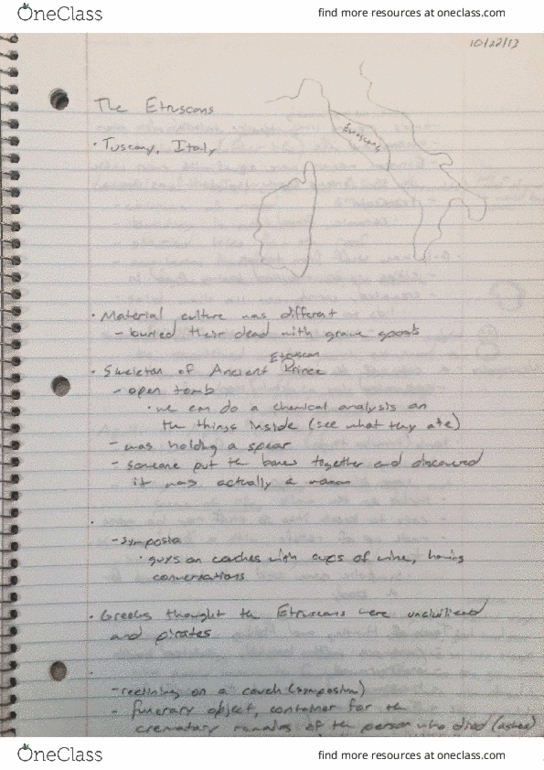 OneClass
find more resources at oneclass.com
10/22/13
The Etruscans
Etruscans
· Tuscany, Italy
· Material culture was different
- buried their dead with grave goods
Etruscan
· Skeleton of Ancient Prince
- open tomb
· we can do a chemical analysis on
the things inside (see what they ate)
- was holding a spear
- someone put the bones together and discovered
it was actually a woman
·
- symposia
· guys on couches with cups of wine, having
conversations
· Greeks thought the Etruscans were uncivilized
and pirates
·
- reclining on a couch (symposium)
- funerary object, container for the
crematory remains of the person who died (ashes)
OneClass
find more resources at oneclass.com